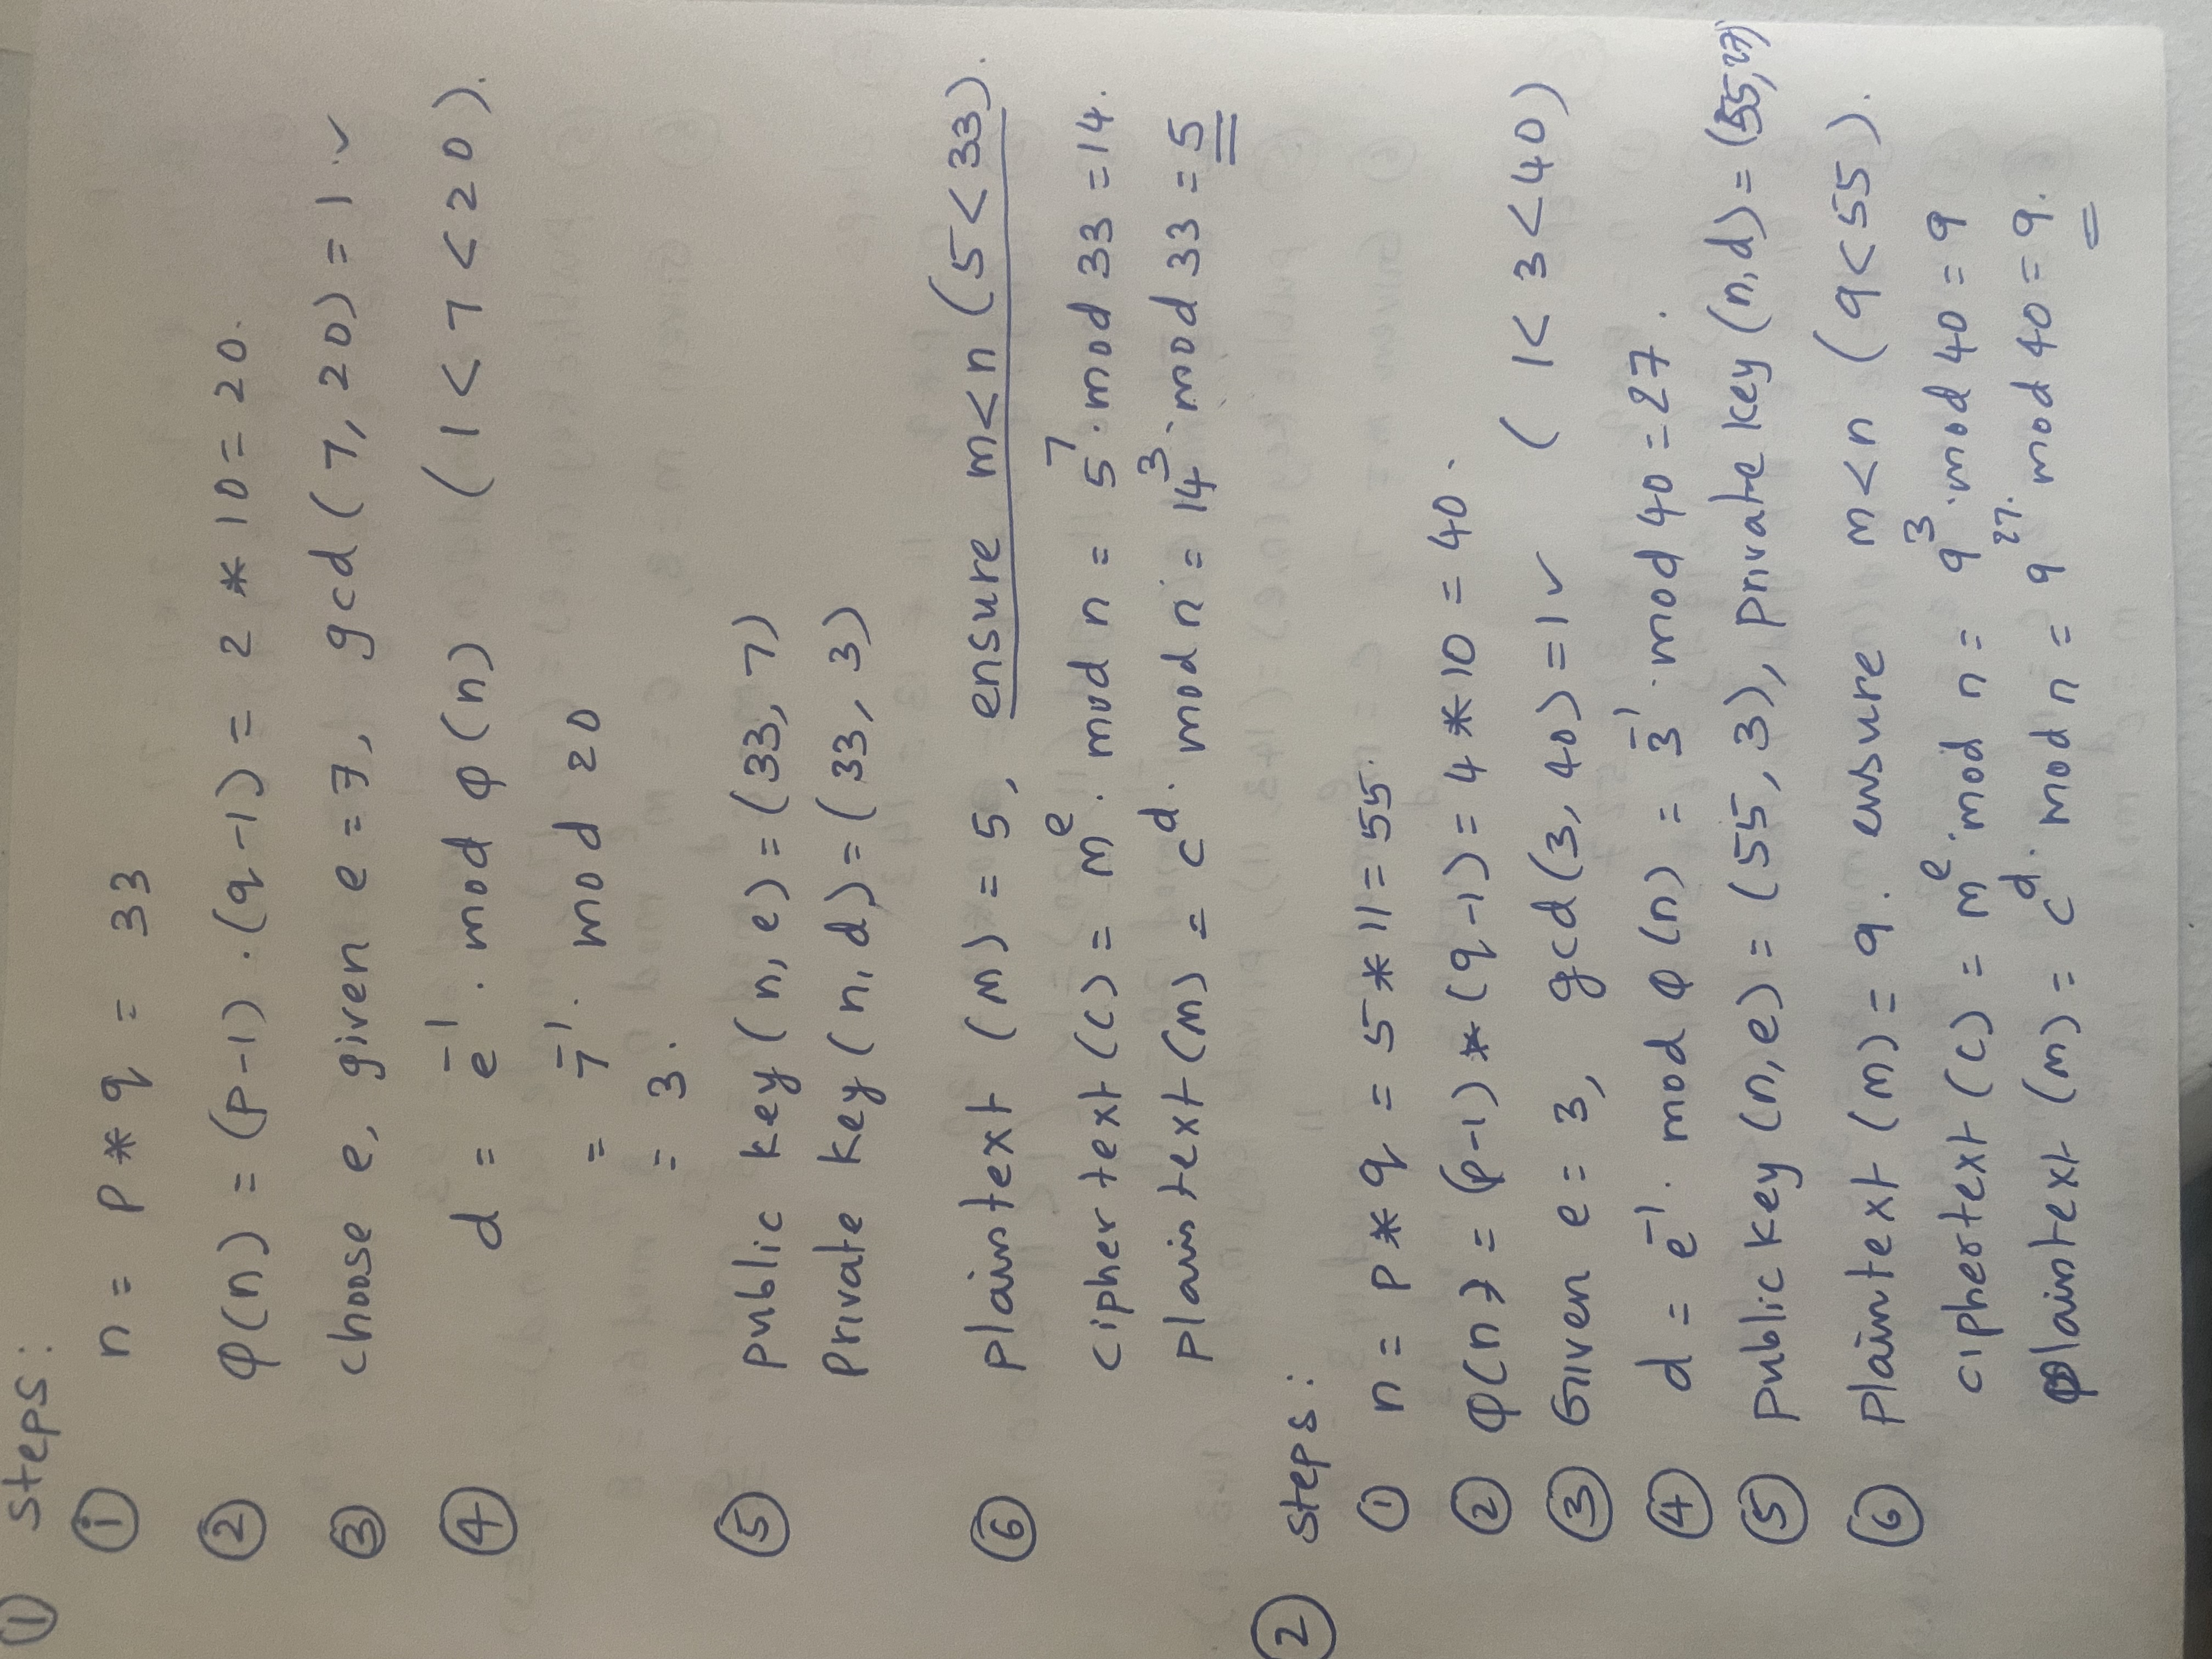 ① Steps:
① n = p * q = 33
② φ(n) = (p-1) . (q-1) = 2 * 10 = 20.
③ choose e, given e = 7, gcd ( 7, 20) = 1 . ✓
④ d = e⁻¹ . mod φ(n) ( 1 < 7 < 20 ).
= 7⁻¹ . mod 20
= 3 .
⑤ public key ( n, e) = (33, 7)
Private key ( n, d) = ( 33, 3)
⑥ plaintext (m) = 5, ensure m<n (5<33).
ciphertext (c) = mᵉ . mod n = 5⁷ . mod 33 = 14.
plaintext (m) = cᵈ . mod n = 14³ . mod 33 = 5
② steps:
① n = p * q = 5 * 11 = 55.
② φ(n) = (p-1) * (q-1) = 4 * 10 = 40 .
③ Given e = 3, gcd (3, 40) = 1 ✓ ( 1< 3 <40)
④ d = e⁻¹ . mod φ(n) = 3⁻¹ . mod 40 = 27 .
⑤ public key (n, e) = (55, 3), private key (n, d) = (55, 27)
⑥ plaintext (m) = 9. ensure m<n (9<55).
ciphertext (c) = mᵉ . mod n = 9³ . mod 40 = 9
plaintext (m) = cᵈ . mod n = 9²⁷ . mod 40 = 9.